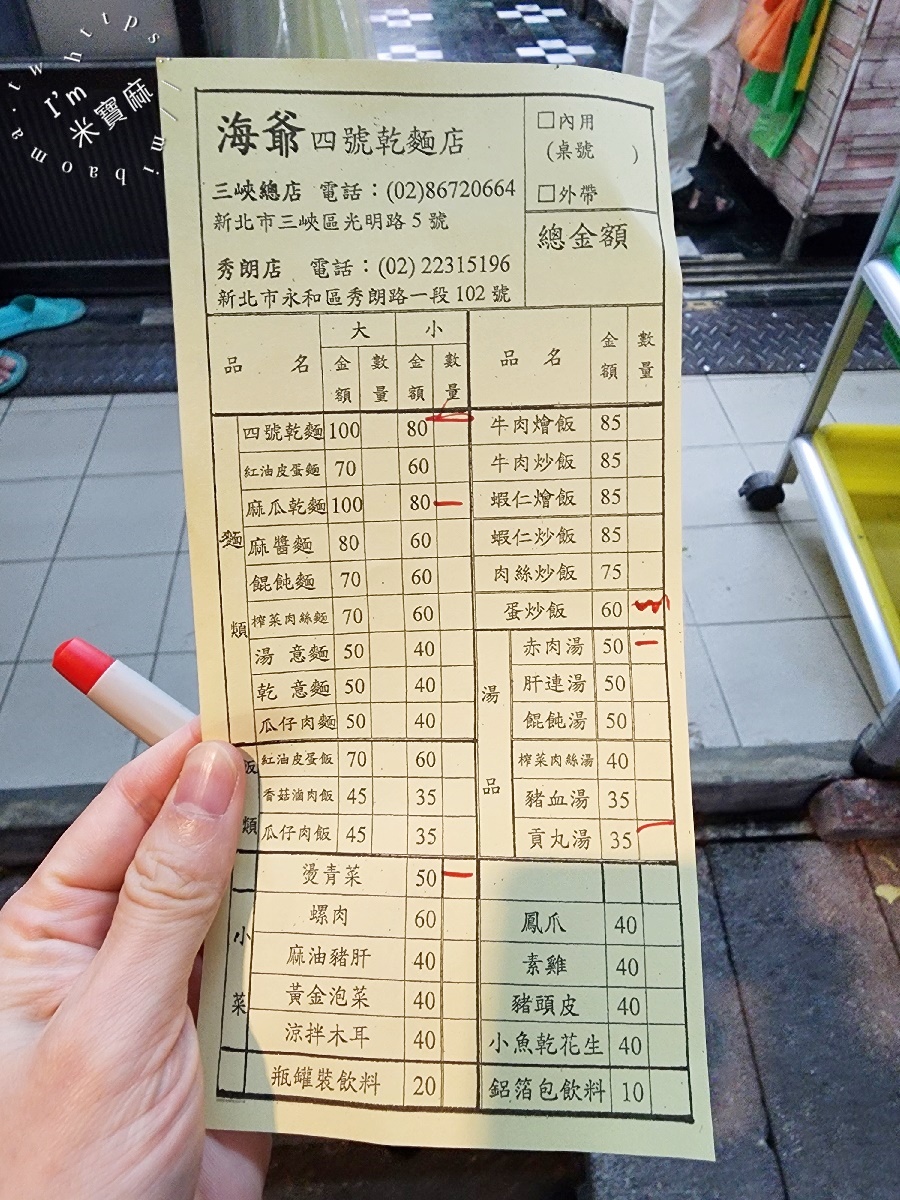 https://mibaoma.tw
I'm
米寶麻
海爺 四號乾麵店
三峽總店 電話：(02)86720664
新北市三峽區光明路 5 號
秀朗店 電話：(02) 22315196
新北市永和區秀朗路一段 102 號
□內用
(桌號 )
□外帶
總金額
品 名 大 小 品 名 金額 數量
金額 數量 金額 數量
麵類
四號乾麵 100 80
紅油皮蛋麵 70 60
麻瓜乾麵 100 80
麻醬麵 80 60
餛飩麵 70 60
榨菜肉絲麵 70 60
湯 意麵 50 40
乾 意麵 50 40
瓜仔肉麵 50 40
飯類
紅油皮蛋飯 70 60
香菇滷肉飯 45 35
瓜仔肉飯 45 35
牛肉燴飯 85
牛肉炒飯 85
蝦仁燴飯 85
蝦仁炒飯 85
肉絲炒飯 75
蛋炒飯 60
湯品
赤肉湯 50
肝連湯 50
餛飩湯 50
榨菜肉絲湯 40
豬血湯 35
貢丸湯 35
小菜
燙青菜 50
螺肉 60
麻油豬肝 40
黃金泡菜 40
涼拌木耳 40
瓶罐裝飲料 20
鳳爪 40
素雞 40
豬頭皮 40
小魚乾花生 40
鋁箔包飲料 10